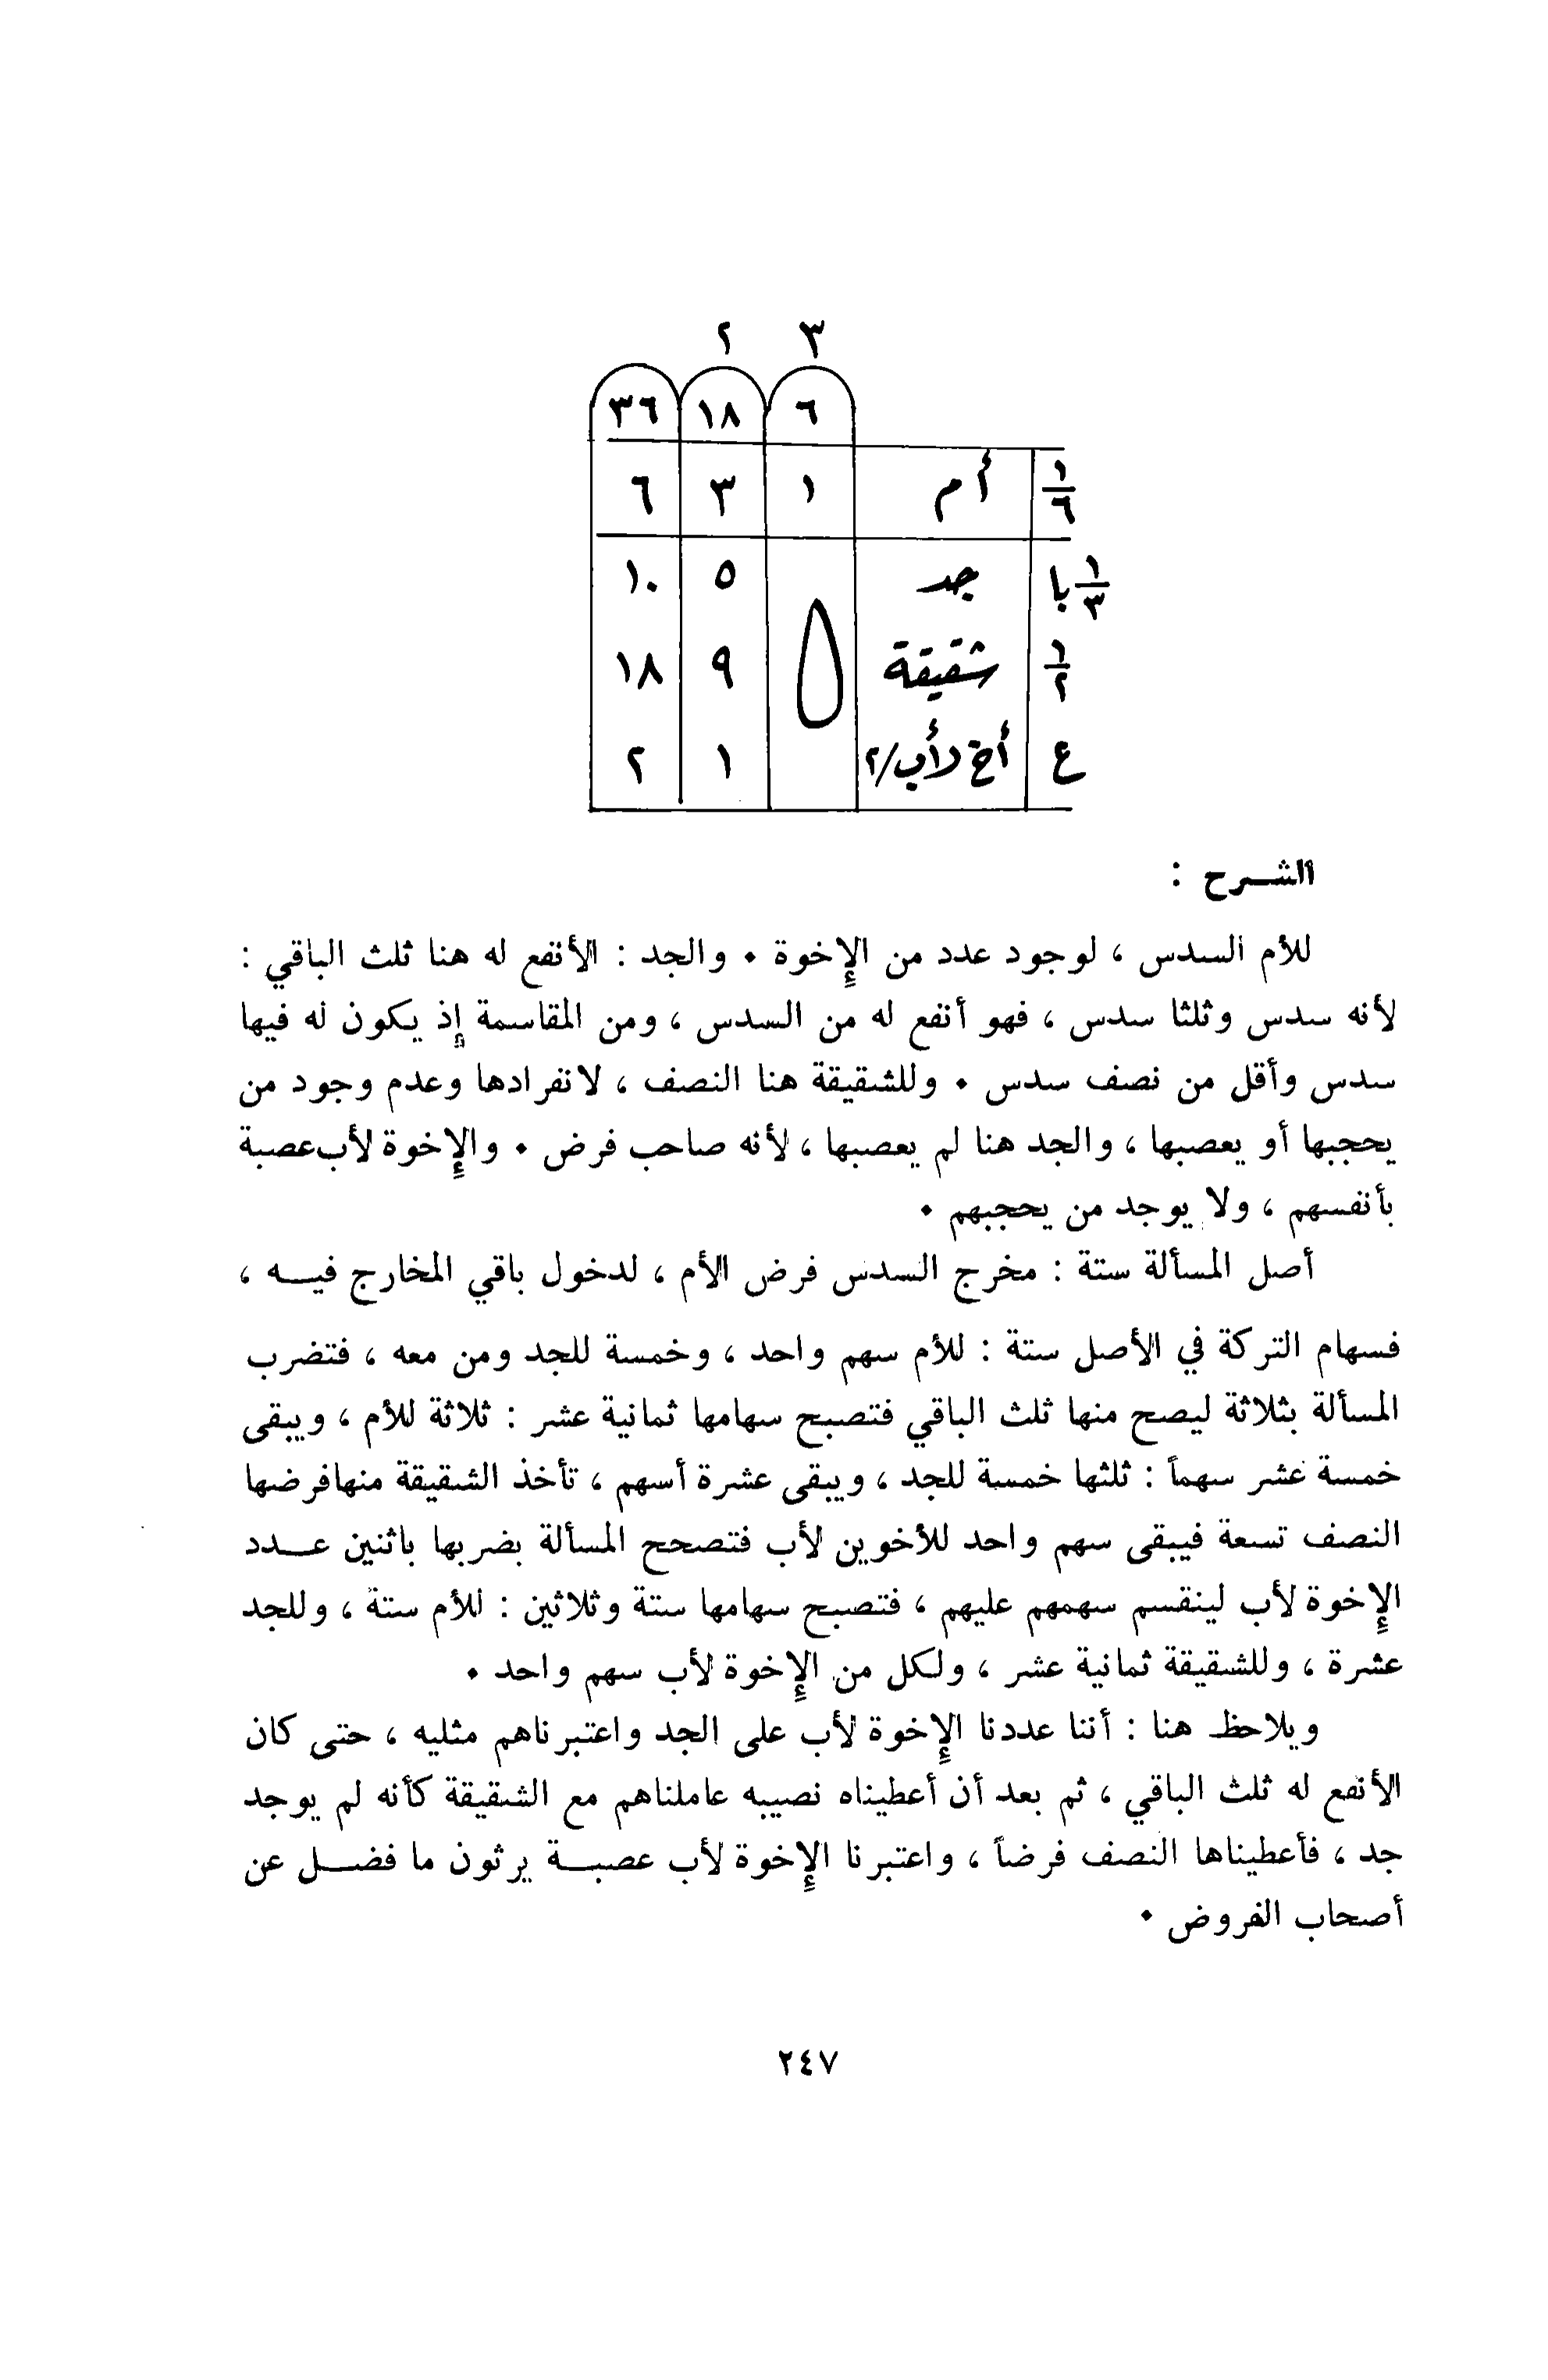 ٣ ٢
٦ ١٨ ٣٦
١/٦ أم ١ ٣ ٦
١/٣ با جد ٥ ٥ ١٠
١/٢ شقيقة ٩ ١٨
ع أخ لأب/٢ ١ ٢
الشرح :
للأم السدس ، لوجود عدد من الإخوة . والجد : الأنفع له هنا ثلث الباقي :
لأنه سدس وثلثا سدس ، فهو أنفع له من السدس ، ومن المقاسمة إذ يكون له فيها
سدس وأقل من نصف سدس . وللشقيقة هنا النصف ، لانفرادها وعدم وجود من
يحجبها أو يعصبها ، والجد هنا لم يعصبها ، لأنه صاحب فرض . والإخوة لأب عصبة
بأنفسهم ، ولا يوجد من يحجبهم .
أصل المسألة ستة : مخرج السدس فرض الأم ، لدخول باقي المخارج فيه ،
فسهام التركة في الأصل ستة : للأم سهم واحد ، وخمسة للجد ومن معه ، فتضرب
المسألة بثلاثة ليصح منها ثلث الباقي فتصبح سهامها ثمانية عشر : ثلاثة للأم ، ويبقى
خمسة عشر سهماً : ثلثها خمسة للجد ، ويبقى عشرة أسهم ، تأخذ الشقيقة منها فرضها
النصف تسعة فيبقى سهم واحد للأخوين لأب فتصحح المسألة بضربها باثنين عدد
الإخوة لأب لينقسم سهمهم عليهم ، فتصبح سهامها ستة وثلاثين : للأم ستة ، وللجد
عشرة ، وللشقيقة ثمانية عشر ، ولكل من الإخوة لأب سهم واحد .
ويلاحظ هنا : أننا عددنا الإخوة لأب على الجد واعتبرناهم مثليه ، حتى كان
الأنفع له ثلث الباقي ، ثم بعد أن أعطيناه نصيبه عاملناهم مع الشقيقة كأنه لم يوجد
جد ، فأعطيناها النصف فرضاً ، واعتبرنا الإخوة لأب عصبة يرثون ما فضل عن
أصحاب الفروض .
٢٤٧